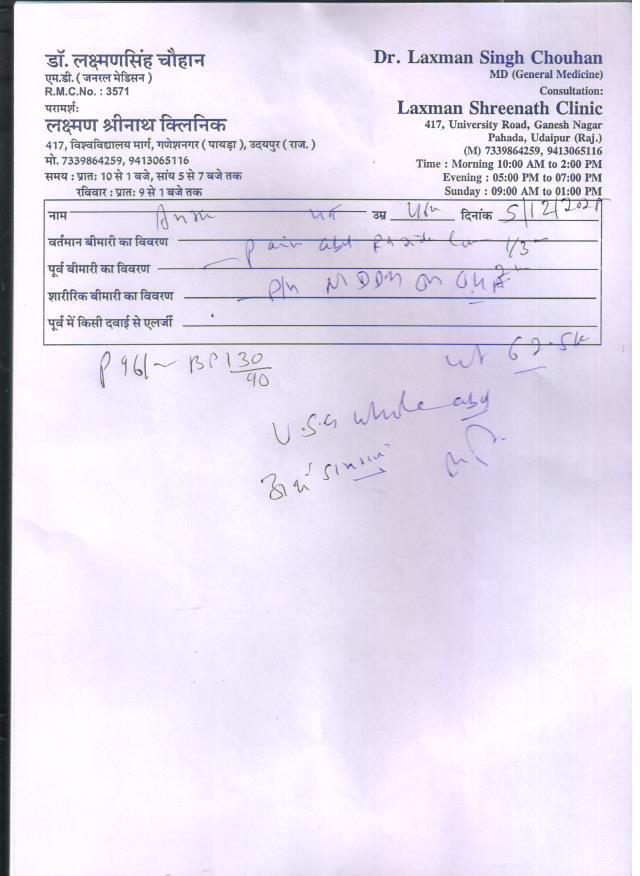 डॉ. लक्ष्मणसिंह चौहान
एम.डी. ( जनरल मेडिसन )
R.M.C.No. : 3571
परामर्शः
लक्ष्मण श्रीनाथ क्लिनिक
417, विश्वविद्यालय मार्ग, गणेशनगर ( पायड़ा ), उदयपुर ( राज. )
मो. 7339864259, 9413065116
समय : प्रातः 10 से 1 बजे, सांय 5 से 7 बजे तक
रविवार : प्रातः 9 से 1 बजे तक
Dr. Laxman Singh Chouhan
MD (General Medicine)
Consultation:
Laxman Shreenath Clinic
417, University Road, Ganesh Nagar
Pahada, Udaipur (Raj.)
(M) 7339864259, 9413065116
Time : Morning 10:00 AM to 2:00 PM
Evening : 05:00 PM to 07:00 PM
Sunday : 09:00 AM to 01:00 PM
नाम उम्र दिनांक 5/12/202
वर्तमान बीमारी का विवरण pain abd
पूर्व बीमारी का विवरण
शारीरिक बीमारी का विवरण P/h NIDDM on OHA
पूर्व में किसी दवाई से एलर्जी
P 96/- BP 130/90 wt 62.5k
U.S.G whole abd